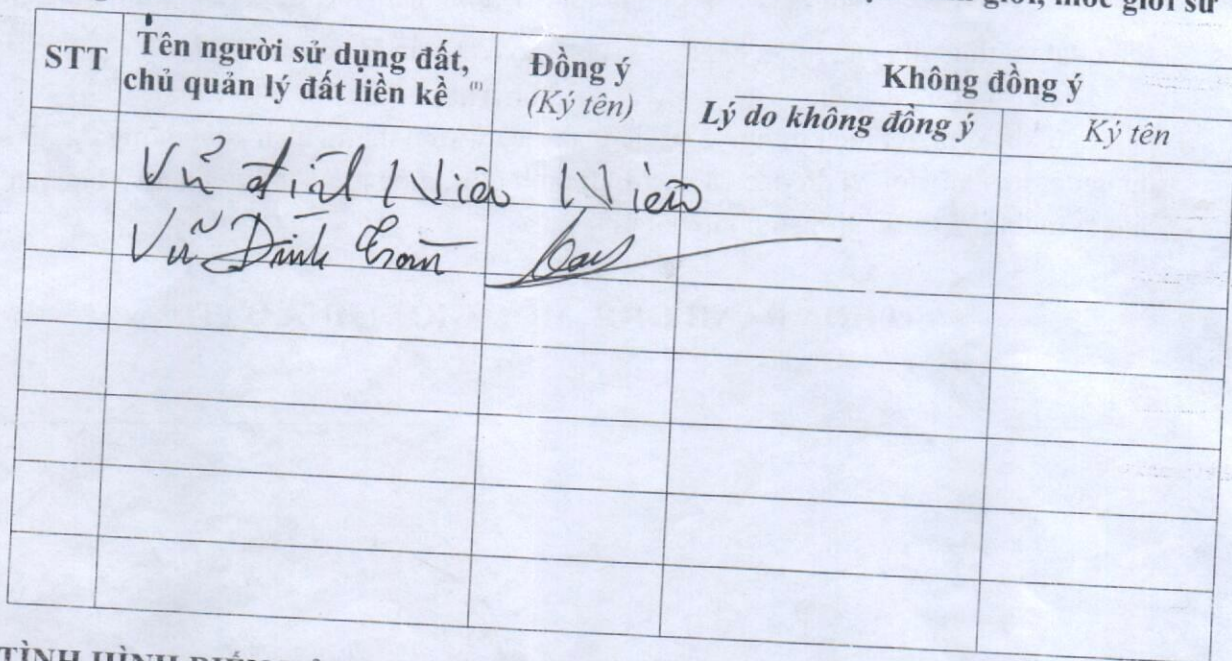 giới, mốc giới sử
STT Tên người sử dụng đất, chủ quản lý đất liền kề Đồng ý (Ký tên) Không đồng ý
Lý do không đồng ý Ký tên
Vũ đình
Vũ Đình
TÌNH HÌNH